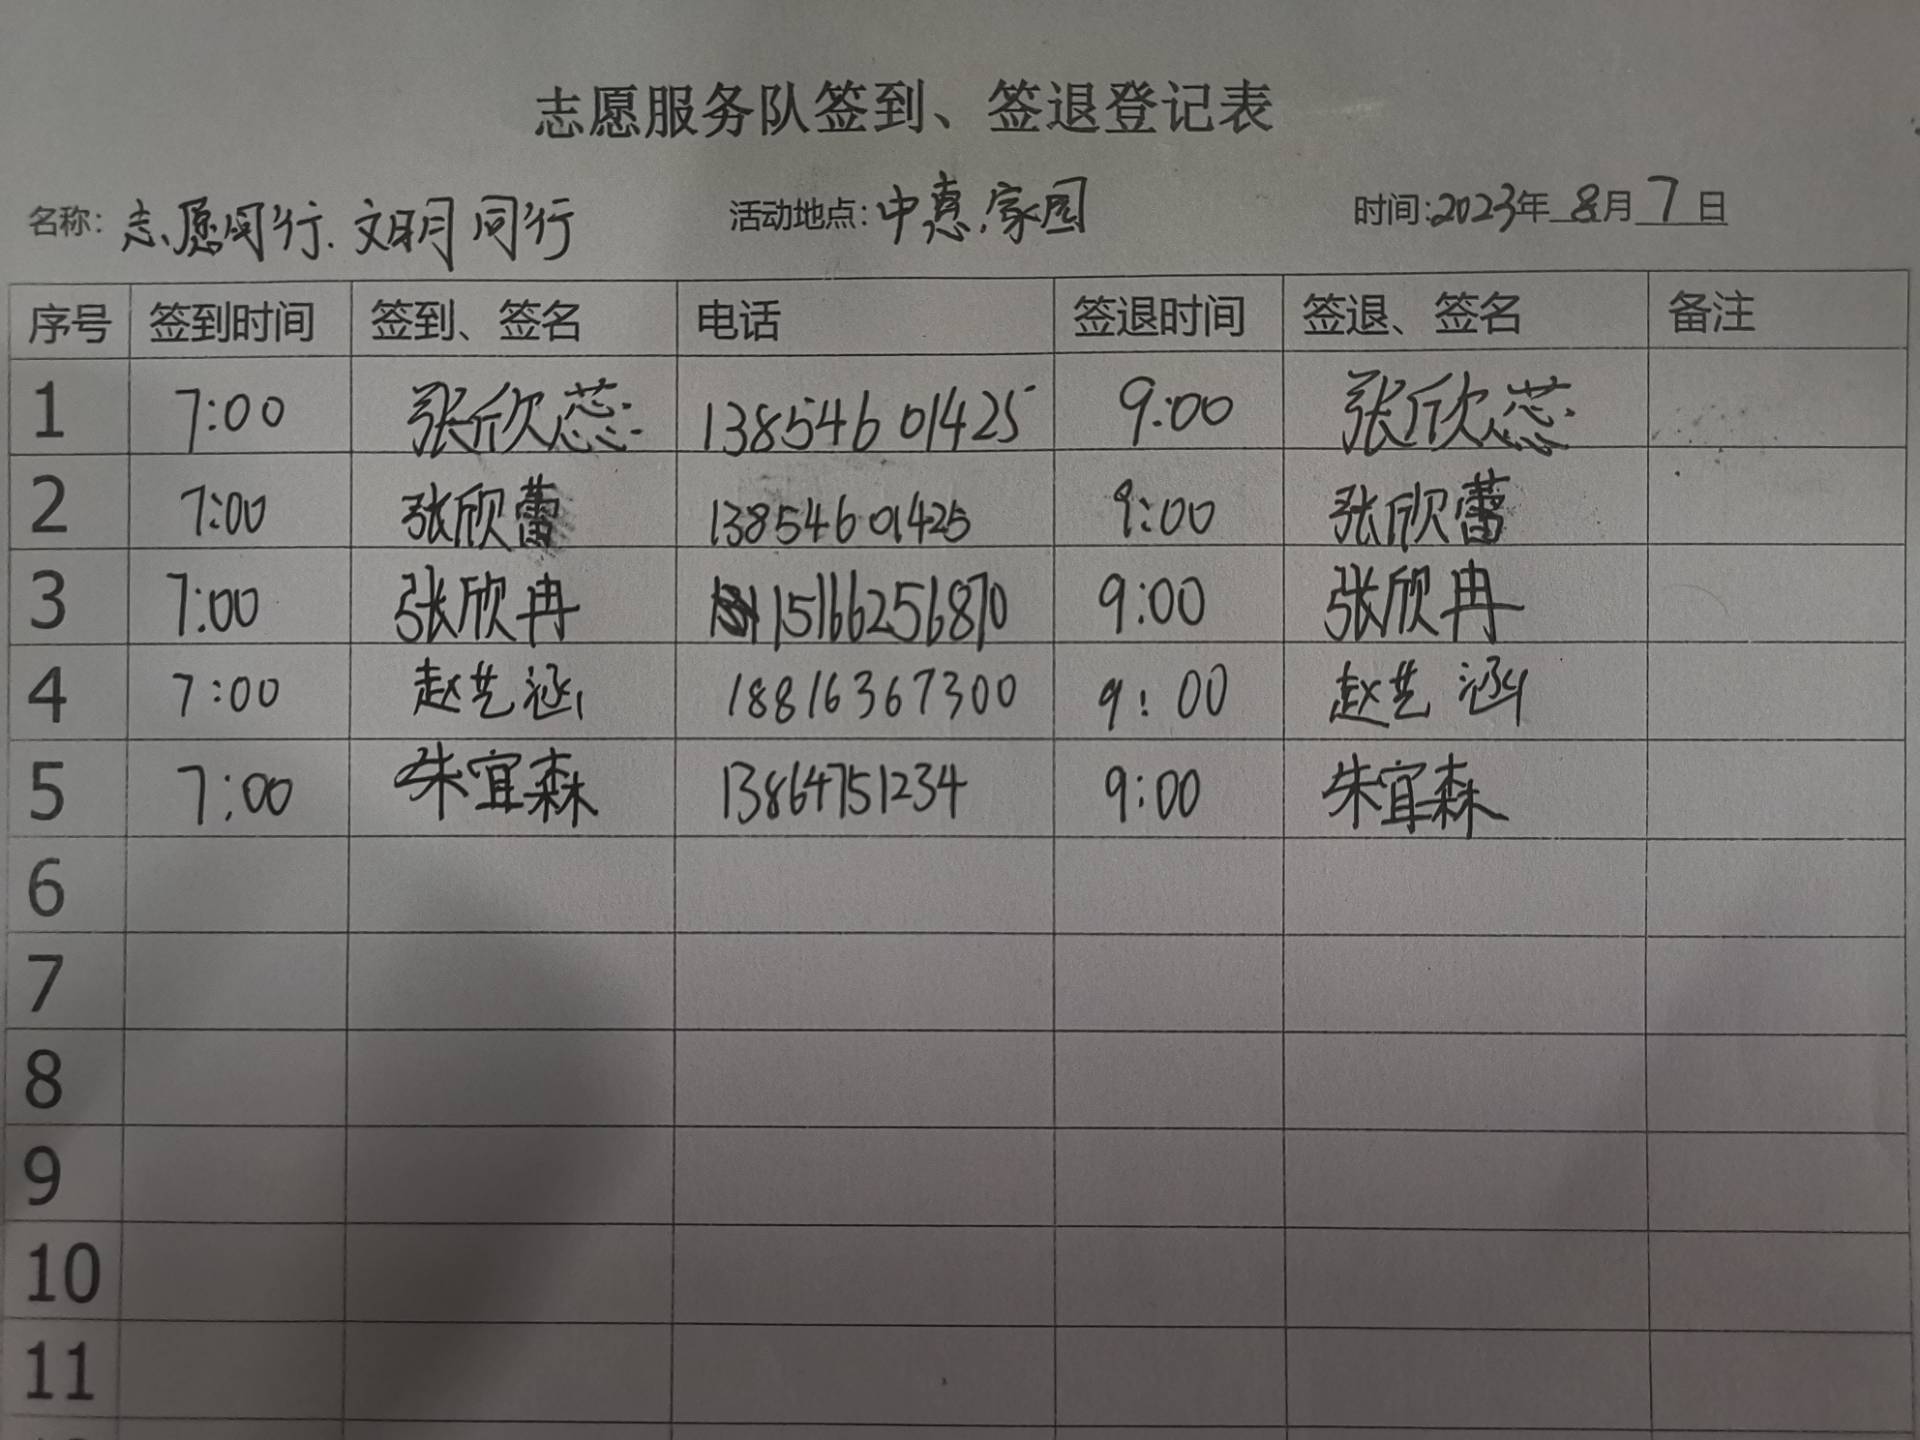 志愿服务队签到、签退登记表
名称：志愿同行.文明同行 活动地点：中惠.家园 时间：2023年 8月 7日
序号 签到时间 签到、签名 电话 签退时间 签退、签名 备注
1 7:00 张欣蕊 13854601425 9:00 张欣蕊
2 7:00 张欣蕾 13854601425 9:00 张欣蕾
3 7:00 张欣冉 15166256870 9:00 张欣冉
4 7:00 赵艺涵 18816367300 9:00 赵艺涵
5 7:00 朱宜森 13864751234 9:00 朱宜森
6
7
8
9
10
11